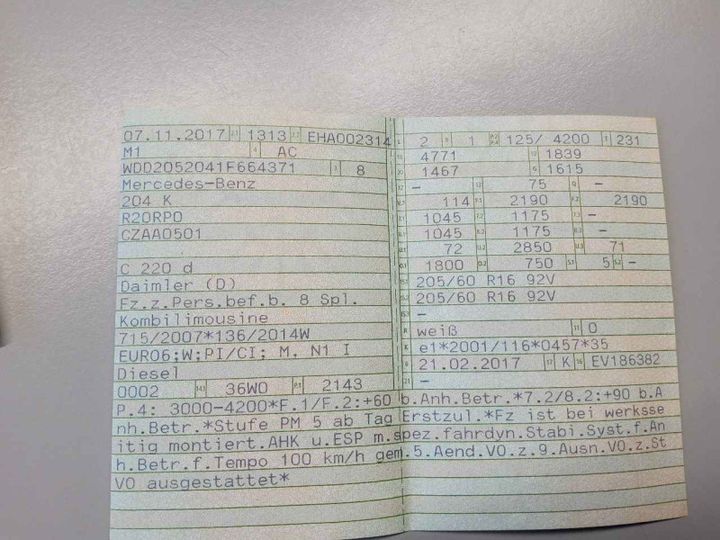 07.11.2017 1313 EHA002314
M1 AC
WDD2052041F664371 8
Mercedes-Benz
204 K
R20RP0
CZAA0501
C 220 d
Daimler (D)
Fz.z.Pers.bef.b. 8 Spl.
Kombilimousine
715/2007*136/2014W
EURO6;W;PI/CI; M, N1 I
Diesel
0002 36W0 2143
2 1 125/ 4200 231
4771 1839
1467 1615
– 75 –
114 2190 2190
1045 1175 –
1045 1175 –
72 2850 71
1800 750 5 –
205/60 R16 92V
205/60 R16 92V
–
weiß 0
e1*2001/116*0457*35
21.02.2017 K EV186382
–
P.4: 3000-4200*F.1/F.2:+60 b.Anh.Betr.*7.2/8.2:+90 b.A
nh.Betr.*Stufe PM 5 ab Tag Erstzul.*Fz ist bei werksse
itig montiert.AHK u.ESP m.spez.fahrdyn.Stabi.Syst.f.An
h.Betr.f.Tempo 100 km/h gem.5.Aend.VO.z.9.Ausn.VO.z.St
VO ausgestattet*